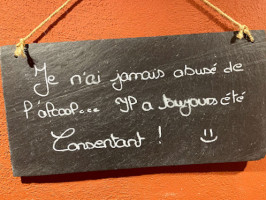 Je n'ai jamais abusé de
l'alcool... Il a toujours été
Consentant ! =)